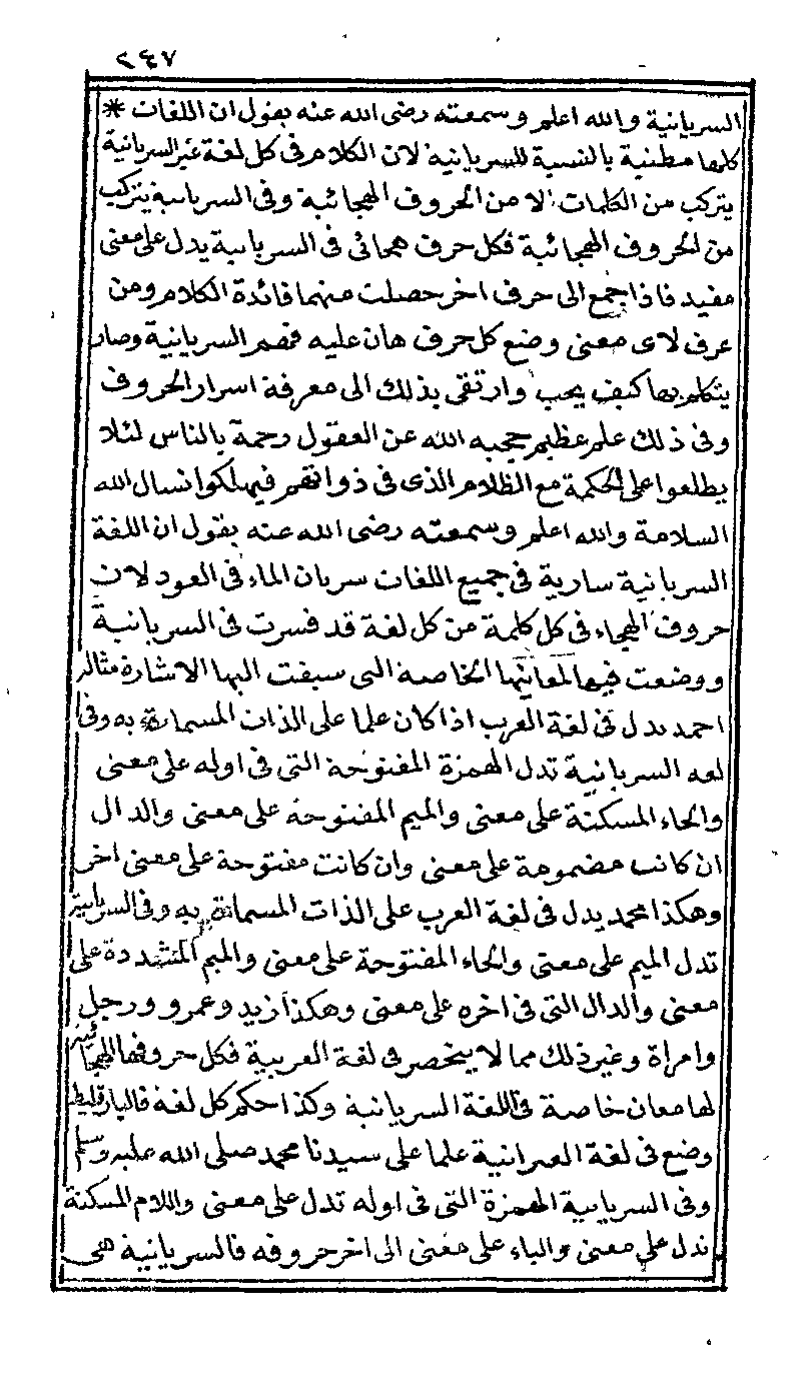 ٢٤٧
السريانية والله اعلم وسمعته رضى الله عنه يقول ان اللغات *
كلها مطنبة بالنسبة للسريانية لان الكلام فى كل لغة غير السريانية
يتركب من الكلمات لا من الحروف الهجائية وفى السريانية يتركب
من الحروف الهجائية فكل حرف هجائى فى السريانية يدل على معنى
مفيد فاذا جمع الى حرف اخر حصلت منهما فائدة الكلام ومن
عرف لاى معنى وضع كل حرف هان عليه فهم السريانية وصار
يتكلم بها كيف يحب وارتقى بذلك الى معرفة اسرار الحروف
وفى ذلك علم عظيم حجبه الله عن العقول رحمة بالناس لئلا
يطلعوا على الحكمة مع الظلام الذى فى ذواتهم فيهلكوا نسال الله
السلامة والله اعلم وسمعته رضى الله عنه يقول ان اللغة
السريانية سارية فى جميع اللغات سريان الماء فى العود لان
حروف الهجاء فى كل كلمة من كل لغة قد فسرت فى السريانية
ووضعت فيها لمعانيها الخاصة التى سبقت اليها الاشارة مثاله
احمد يدل فى لغة العرب اذا كان علما على الذات المسماة به وفى
لغه السريانية تدل الهمزة المفتوحة التى فى اوله على معنى
والحاء المسكنة على معنى والميم المفتوحة على معنى والدال
ان كانت مضمومة على معنى وان كانت مفتوحة على معنى اخر
وهكذا محمد يدل فى لغة العرب على الذات المسماة به وفى السريانية
تدل الميم على معنى والحاء المفتوحة على معنى والميم المشددة على
معنى والدال التى فى اخره على معنى وهكذا زيد وعمرو ورجل
وامراة وغير ذلك مما لا ينحصر فى لغة العربية فكل حروفها الهجائية
لها معان خاصة فى اللغة السريانية وكذا حكم كل لغة فالبارقليط
وضع فى لغة العبرانية علما على سيدنا محمد صلى الله عليه وسلم
وفى السريانية الهمزة التى فى اوله تدل على معنى واللام المسكنة
تدل على معنى والباء على معنى الى اخر حروفه فالسريانية هى